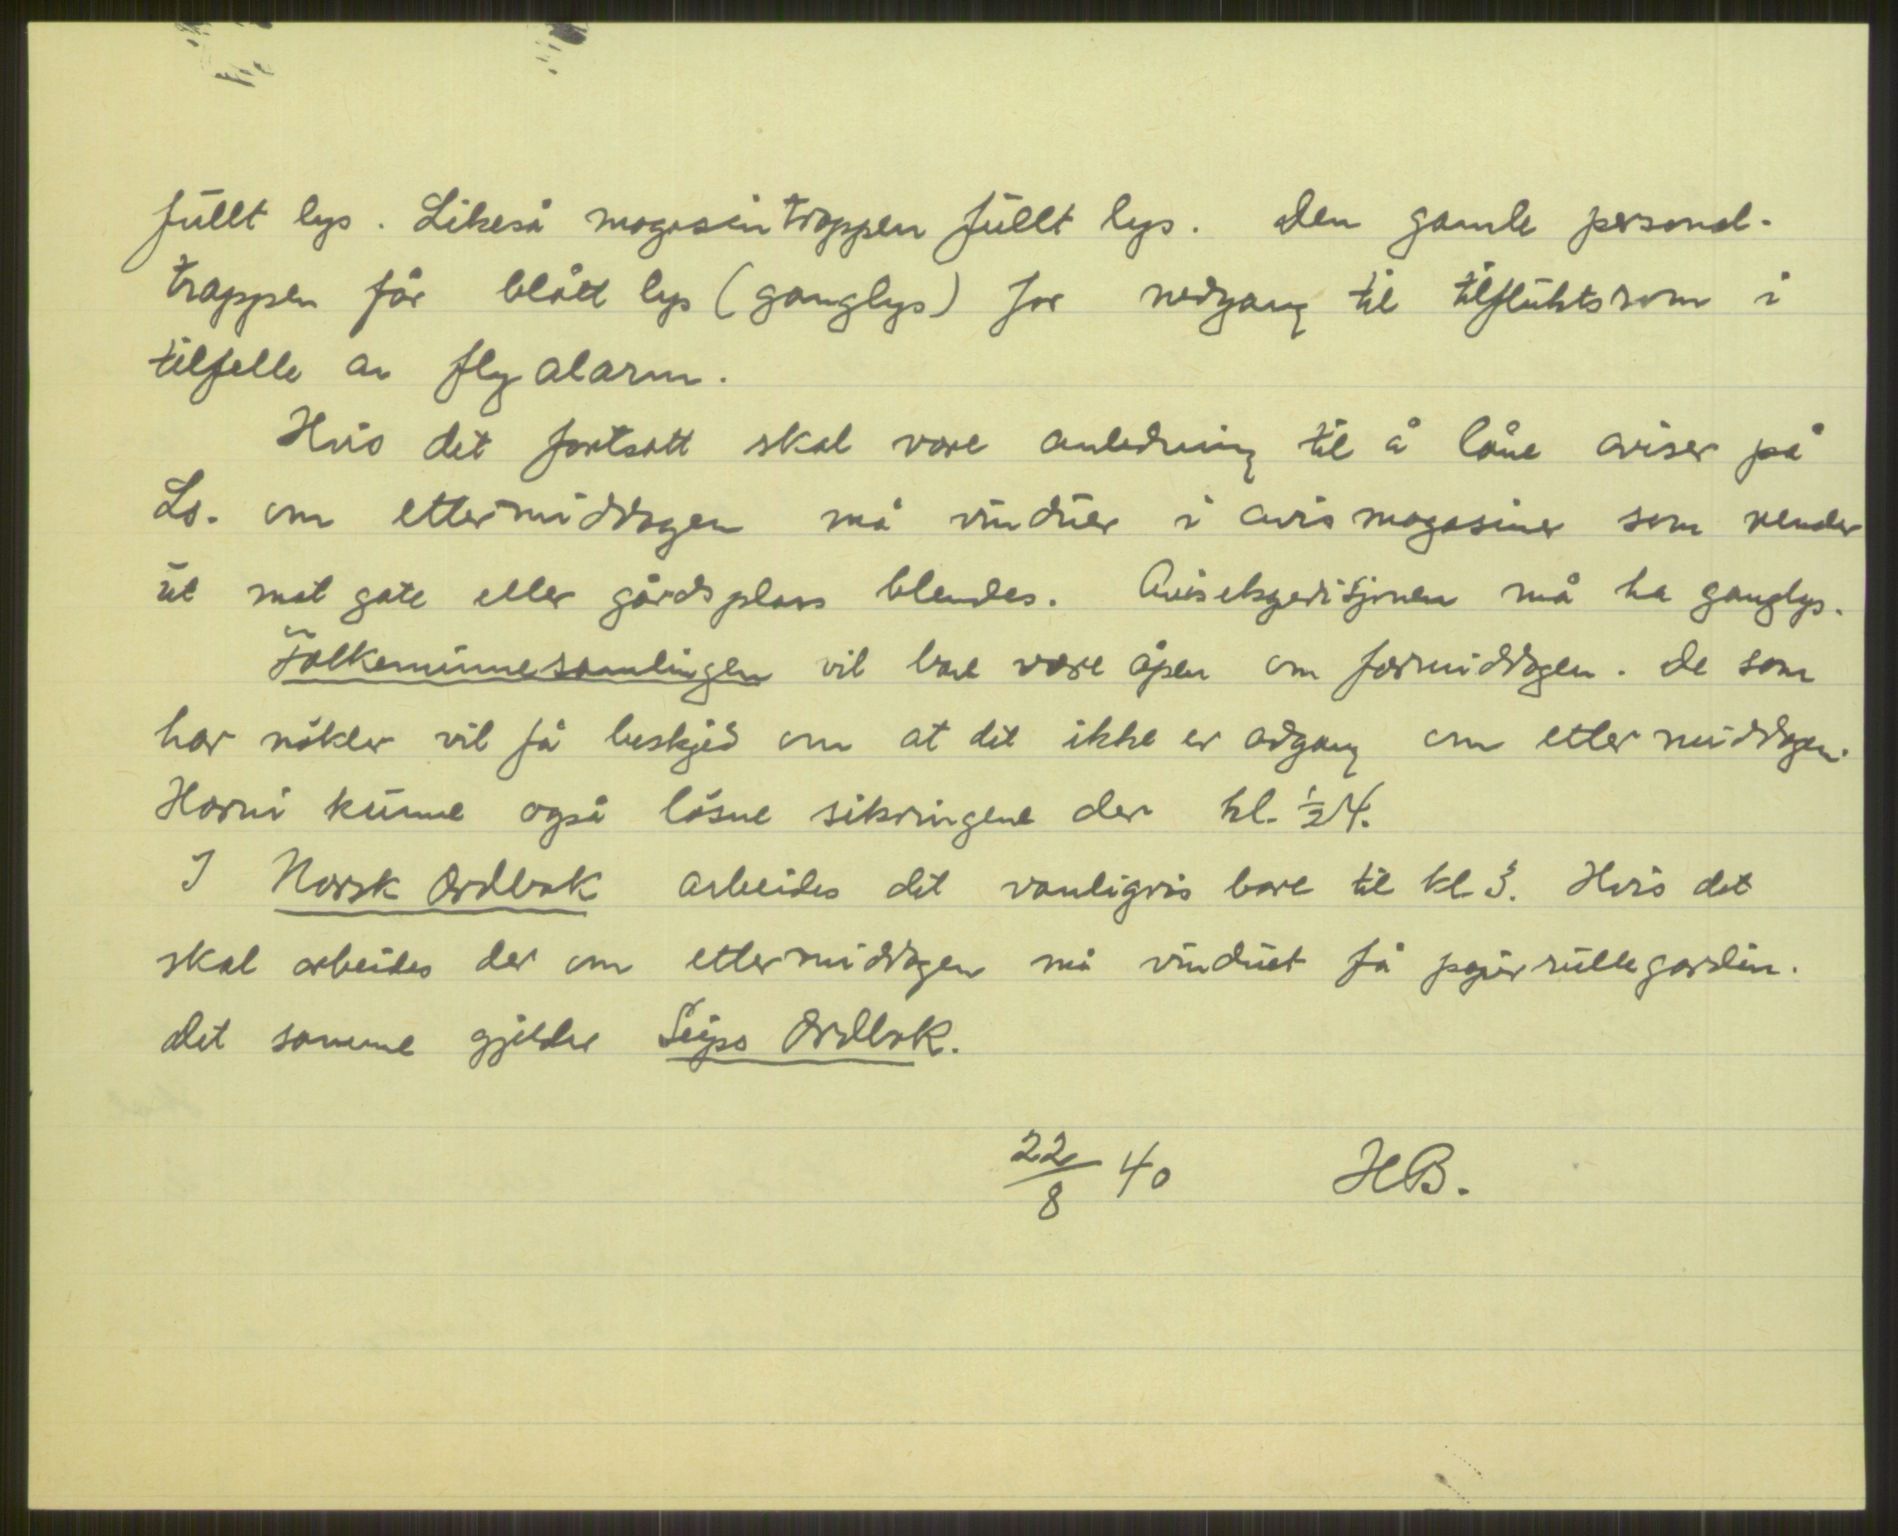 fullt lys. Likeså magasintrappen fullt lys. Den gamle personal-
trappen får blått lys (ganglys) for nedgang til tilfluktsrom i
tilfelle av flyalarm.
Hvis det fortsatt skal være anledning til å låne aviser på
Ls. om ettermiddagen må vinduer i avismagasiner som vender
ut mot gate eller gårdsplass blendes. Avisekspedisjonen må ha ganglys.
Folkeminnesamlingen vil bare være åpen om formiddagen. De som
har nökler vil få beskjed om at det ikke er adgang om ettermiddagen.
kunne også lösne sikringene der kl. ½4.
I Norsk Ordbok arbeides det vanligvis bare til kl. 3. Hvis det
skal arbeides der om ettermiddagen må vinduet få papirrullegardin.
Det samme gjelder Seips Ordbok.
22/8 40 HB.